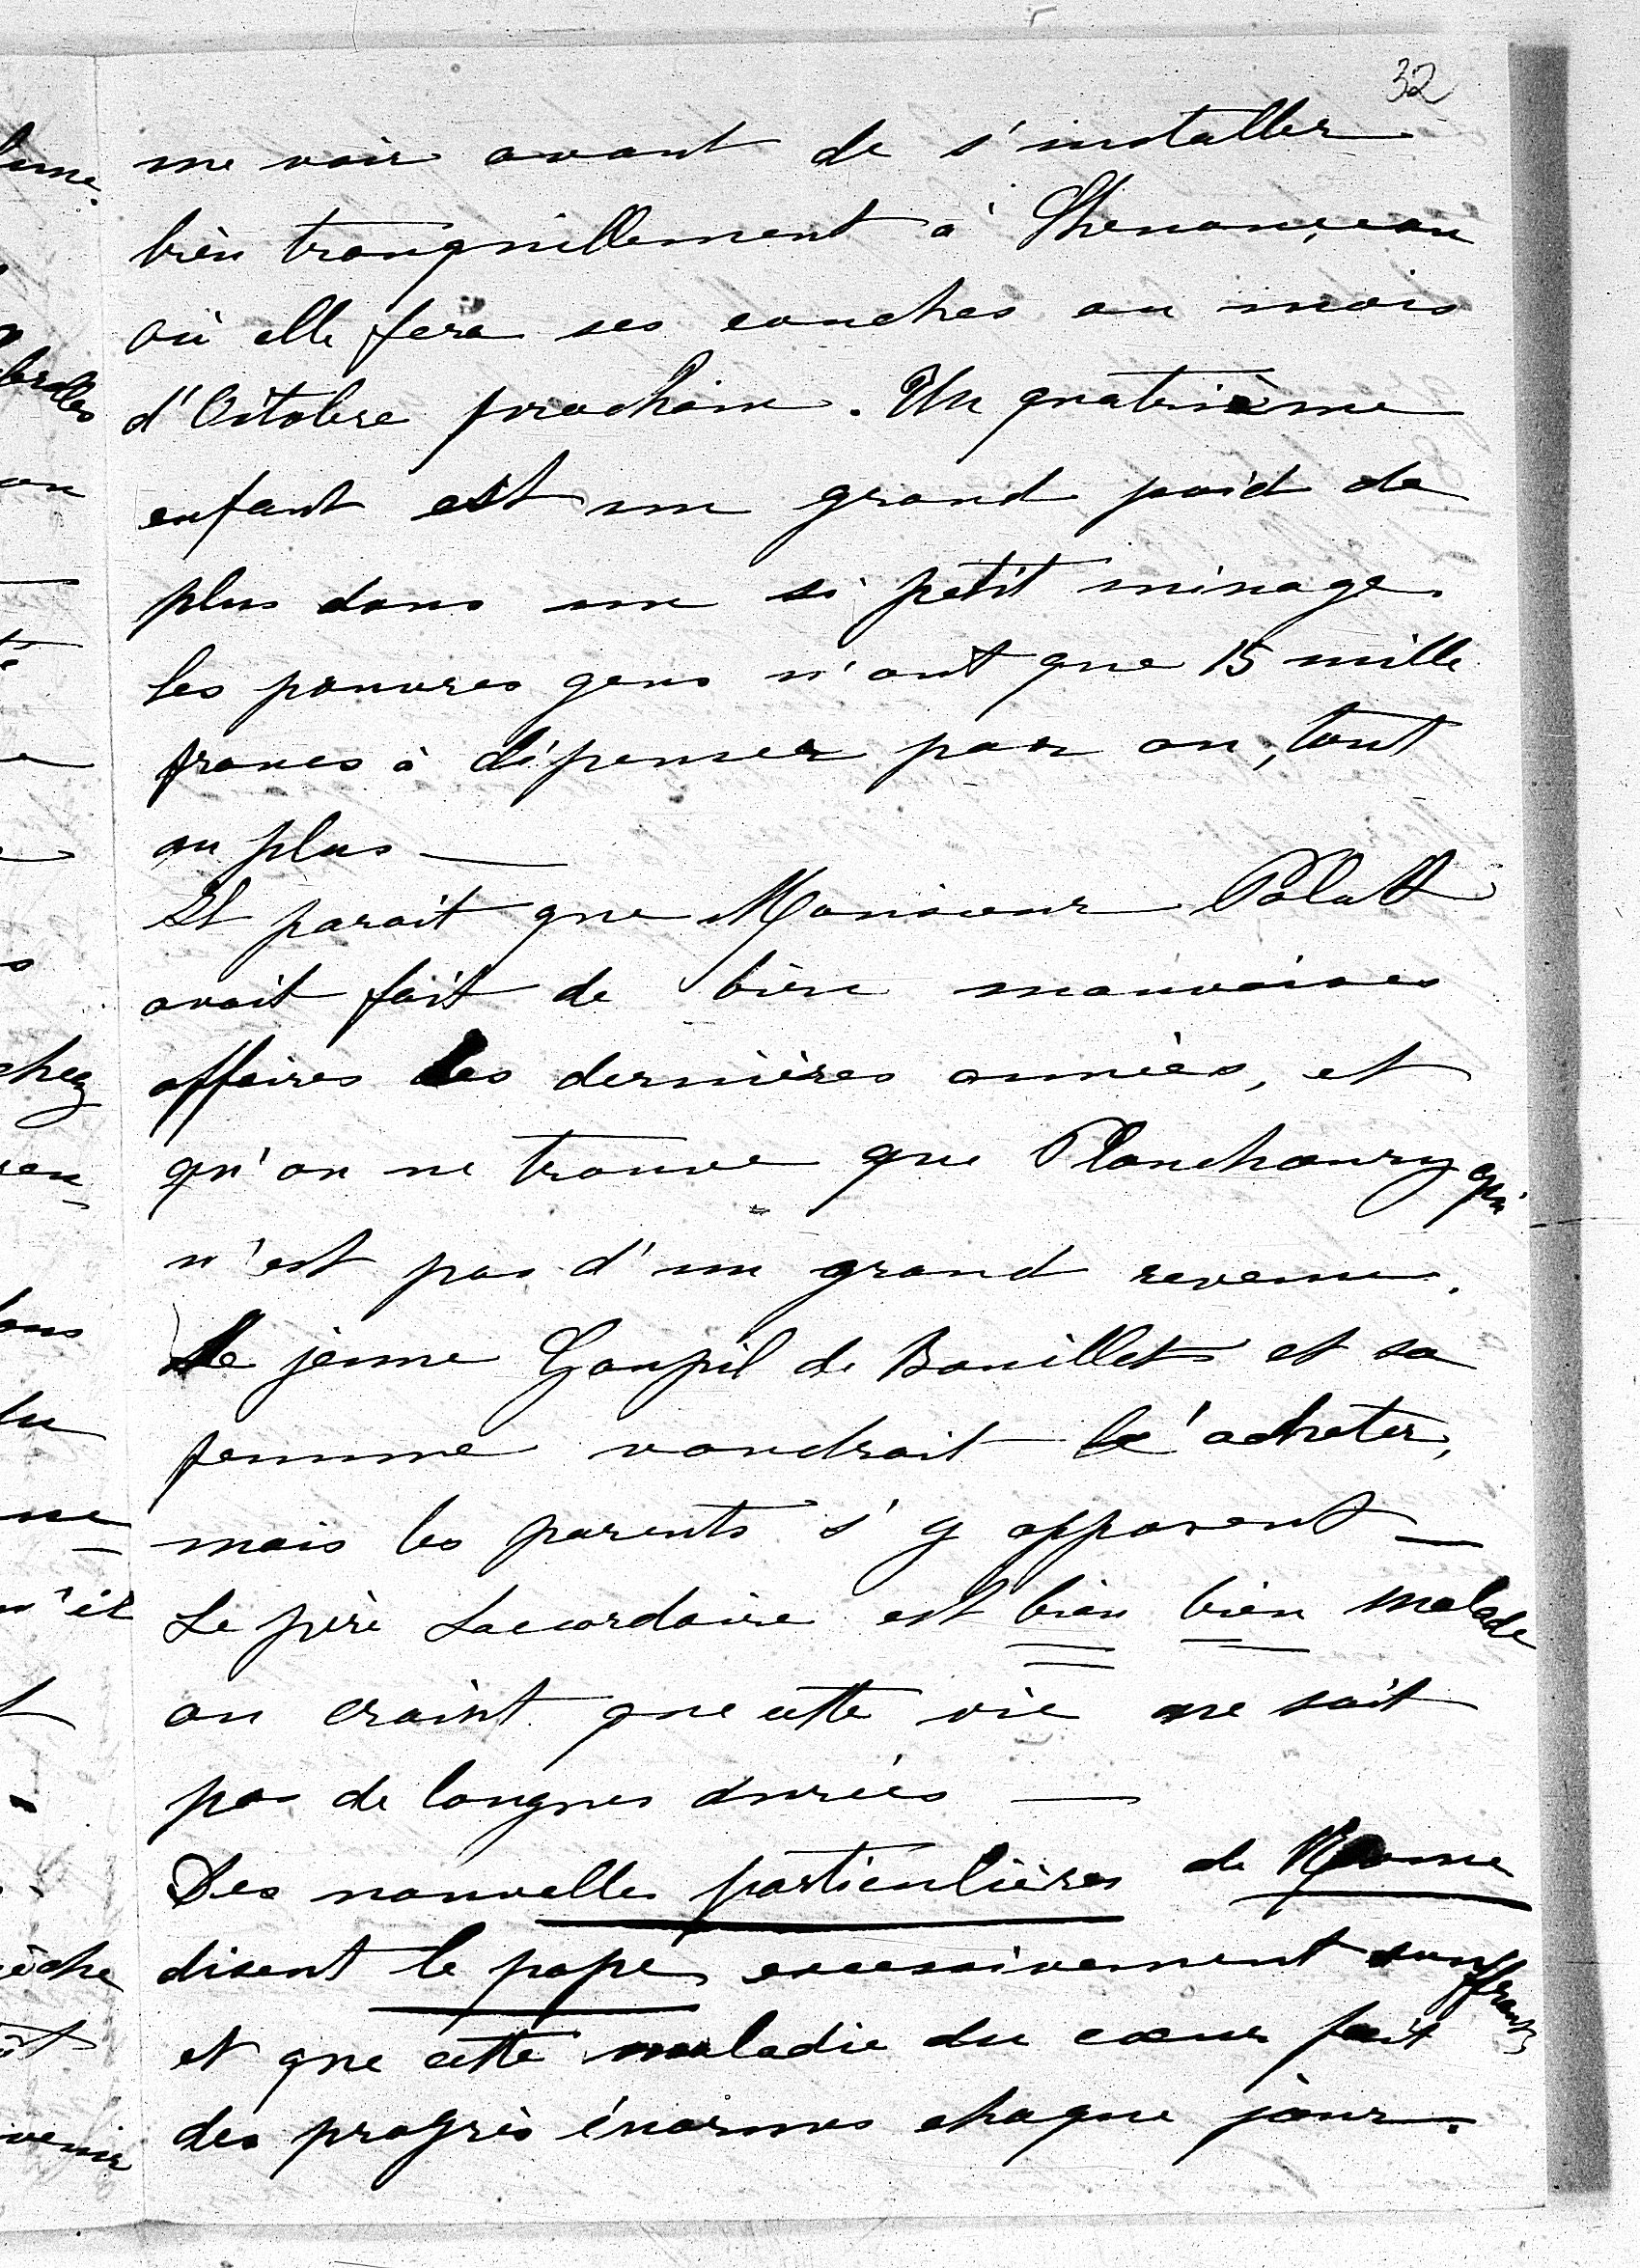 32
me voir avant de s'installer
bien tranquillement à Chenonceau
où elle fera ses couches au mois
d'Octobre prochain. Un quatrième
enfant est un grand poid de
plus dans un si petit ménage.
les pauvres gens n'ont que 15 mille
francs à dépenser par an, tout
au plus —
Il parait que Monsieur Palatt
avait fait de bien mauvaises
affaires les dernières années, et
qu'on ne trouve que Planchoury qui
n'est pas d'un grand revenu.
Le jeune Goupil de Bouillets et sa
femme voudrait l'acheter,
mais les parents s'y opposent —
Le père Laccordaire est bien bien malade
on craint que cette vie ne soit
pas de longues durées —
Des nouvelles particulières de Rome
disent le pape excessivement souffrant
et que cette maladie du cœur fait
des progrès énormes chaque jour.